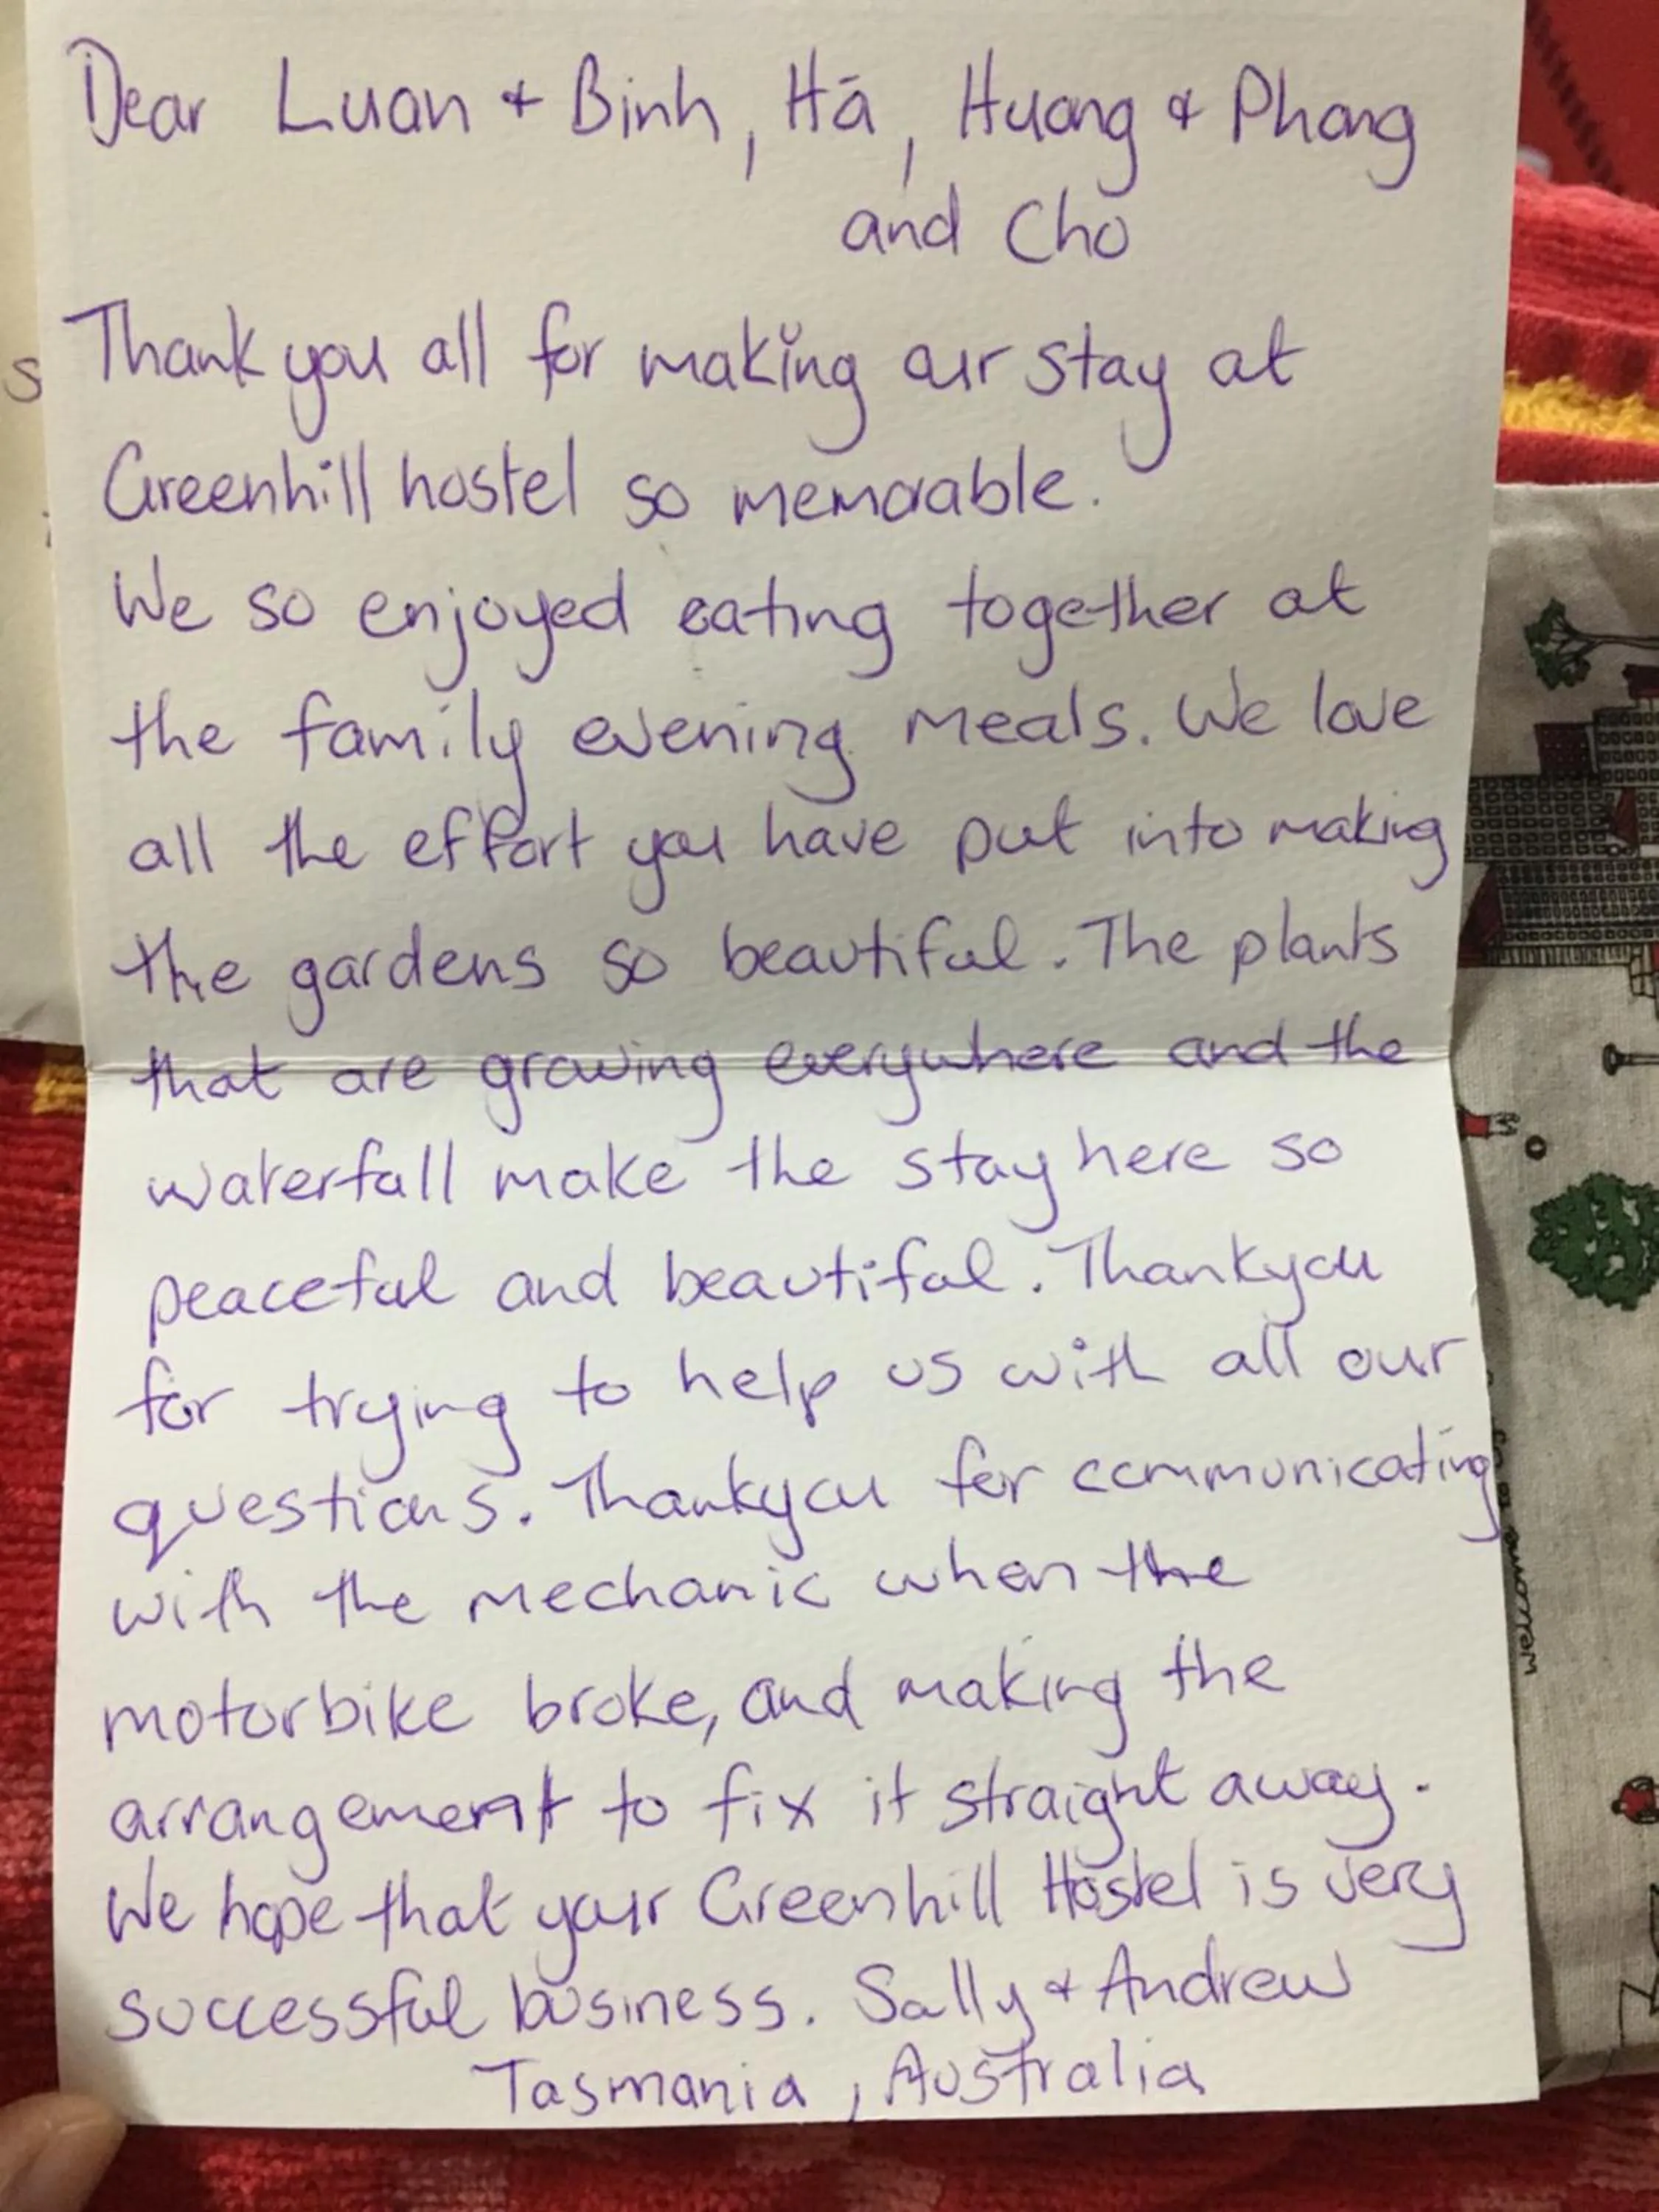 Dear Luan + Binh, Hā, Huong & Phong
and Cho
Thank you all for making our stay at
Greenhill hostel so memorable.
We so enjoyed eating together at
the family evening meals. We love
all the effort you have put into making
the gardens so beautiful. The plants
that are growing everywhere and the
waterfall make the stay here so
peaceful and beautiful. Thankyou
for trying to help us with all our
questions. Thankyou for communicating
with the mechanic when the
motorbike broke, and making the
arrangement to fix it straight away.
We hope that your Greenhill Hostel is very
successful business. Sally & Andrew
Tasmania, Australia
S
welcome to